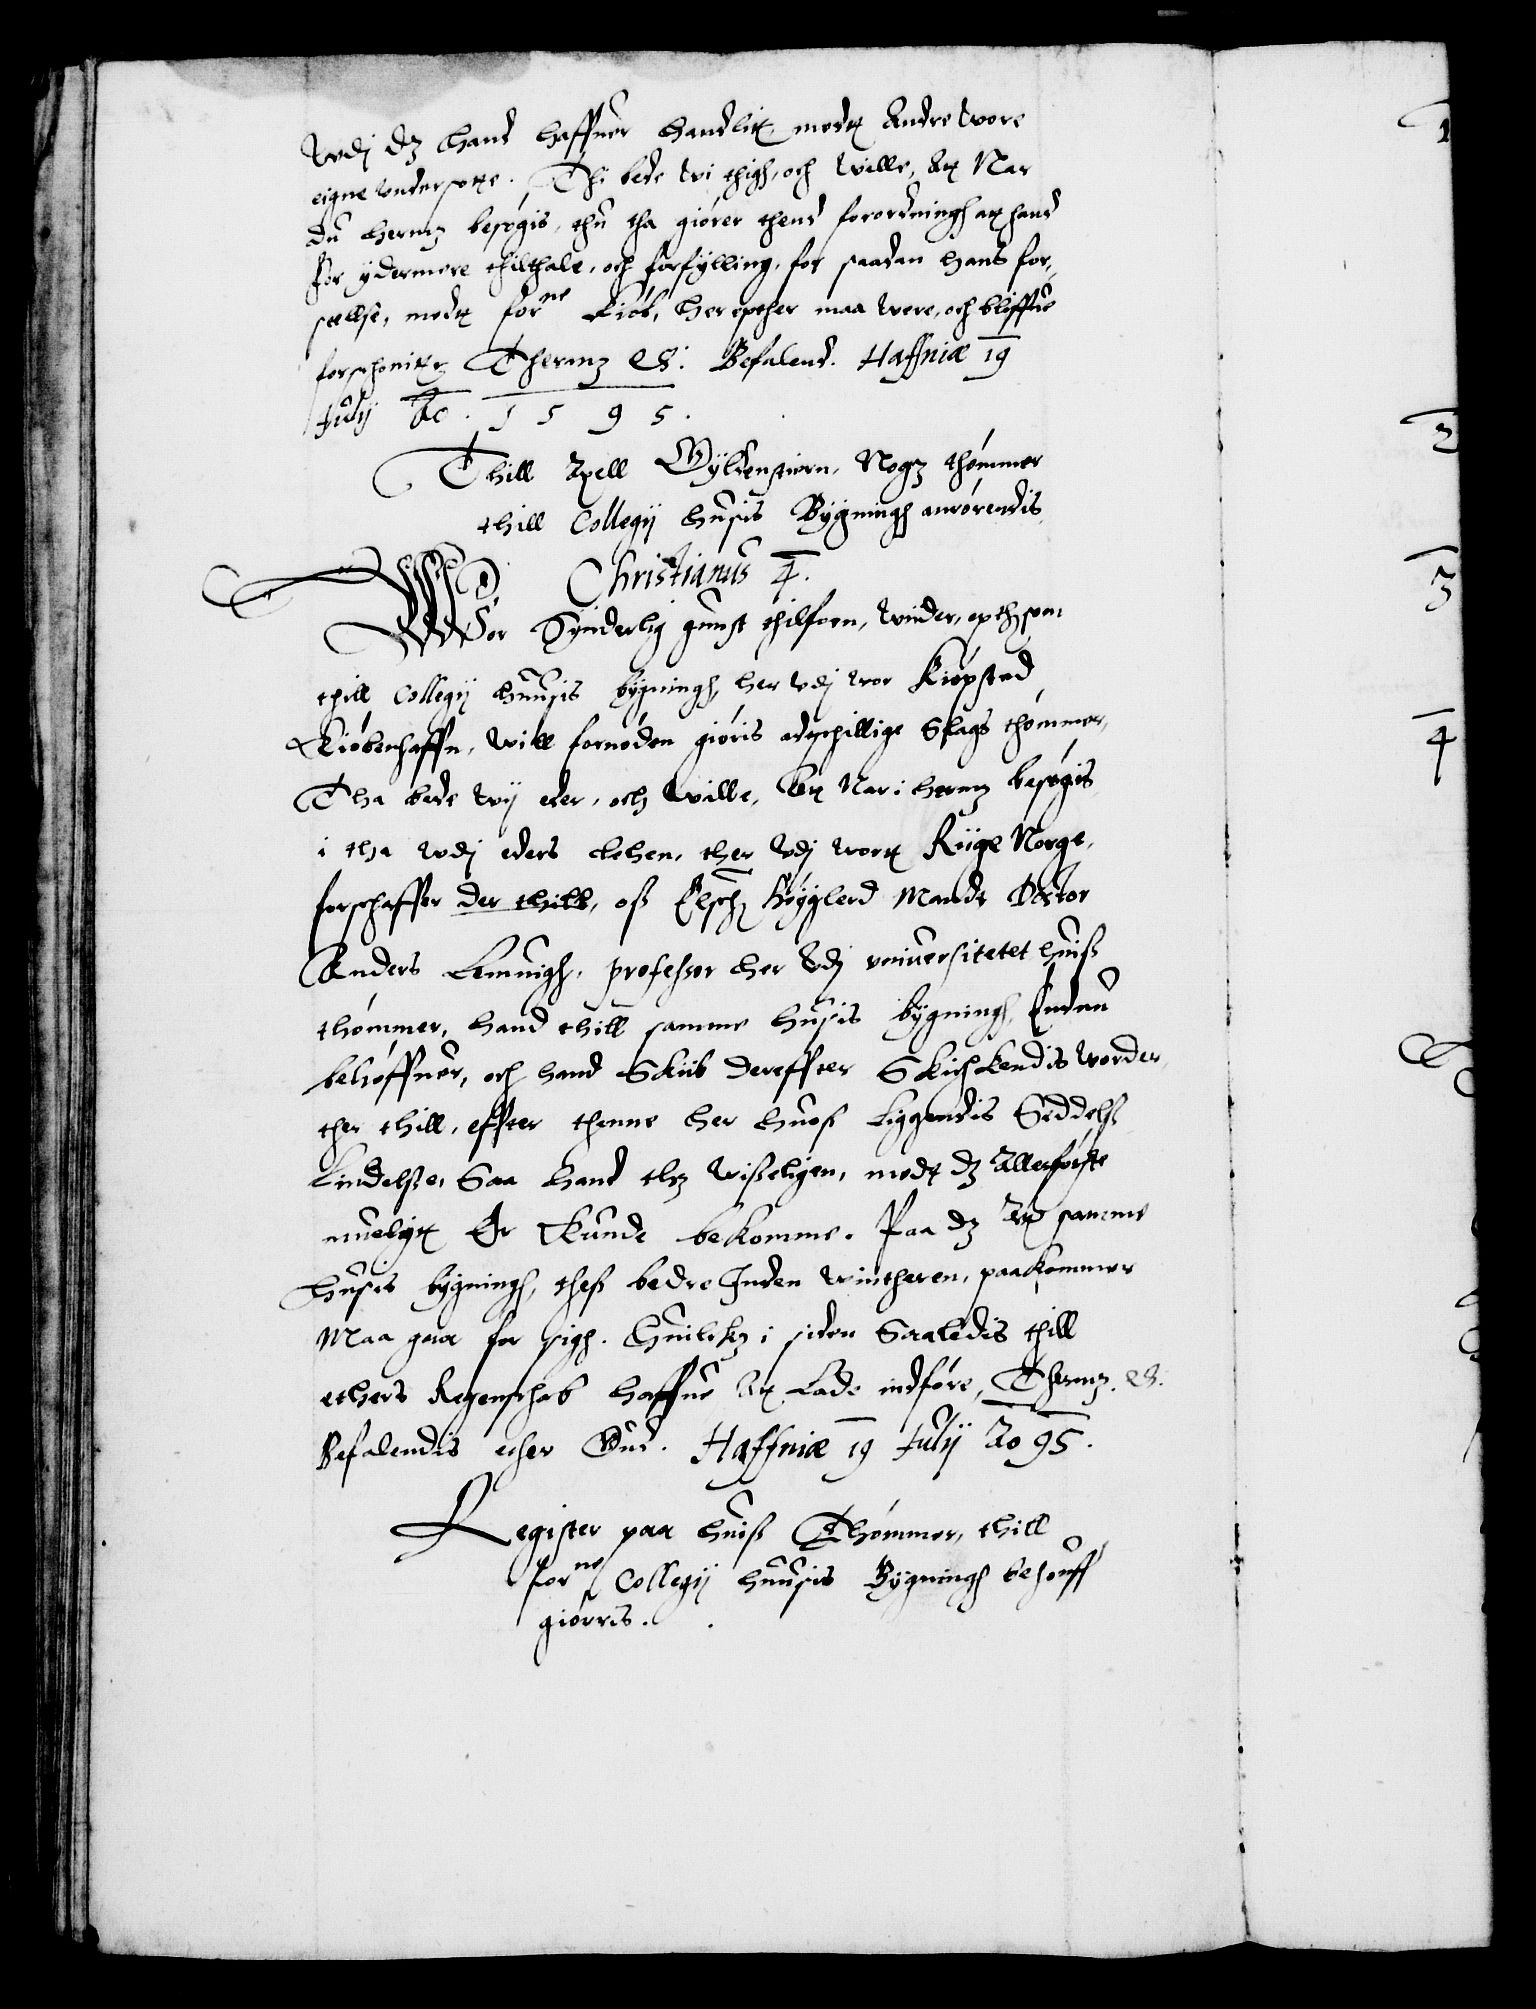 Wdj dz hand haffuer handlitt medtt Andre wore
eigne vndersotte. Thi bede wi thigh, och wille, Att Nar
du hermz besøgis, thu tha giører thend forordningh att hand
for ydermere thilthale, och forfylling, for saadan hans for,
seelse, medtt forne Kiøb, her epther maa were, och bliffue
forschonitt, Thermz etc. Befalend. Haffniæ 19
July Ao. 1595.
Thill Axell Gyldenstiern, Nogz thømmer
thill Collegij husis Bygningh anrørendis
Christianus 4.
Wor Synderlig gunst thilforn, Wider, epthsom
thill Collegij huusis bygningh, her vdj wor Kiøpsted
Kiøbenhaffn, will fornøden giøris adschillige Slags thømmer,
Tha bede wij eder, och wille, Att Nar i hermz besøgis
i tha wdj eders Lehen, ther Vdj wortt Riige Norge,
forschaffer der thill, oss Elsch: Høyglerd Mandt Doctor
Anders Lemuigh, professor her Vdj vniuersitetet huiss
thømmer, hand thill samme husis bygningh, Endnu
behøffuer, och hand Skiib dereffter Skickendis worder
ther thill, effter thenne her huoss Liggendis Seddelss
Liudelsse, Saa hand thz wisseligen, medt dz Allerførste
mueligtt Er Kunde bekomme. Paa dz Att samme
husis bygningh, thess bedre Inden wintheren, paakommer
Maa gaa for sigh. Huilchz i siden Saaledis thill
ethers Regenschab haffue Att Lade indføre, Thermz. etc.
Befalendis ether Gud. Haffniæ 19 July Ao 95.
Register paa huiss Thømmer, thill
forne Collegij huusis Bygningh behouff
giørris.
1
2
3
4